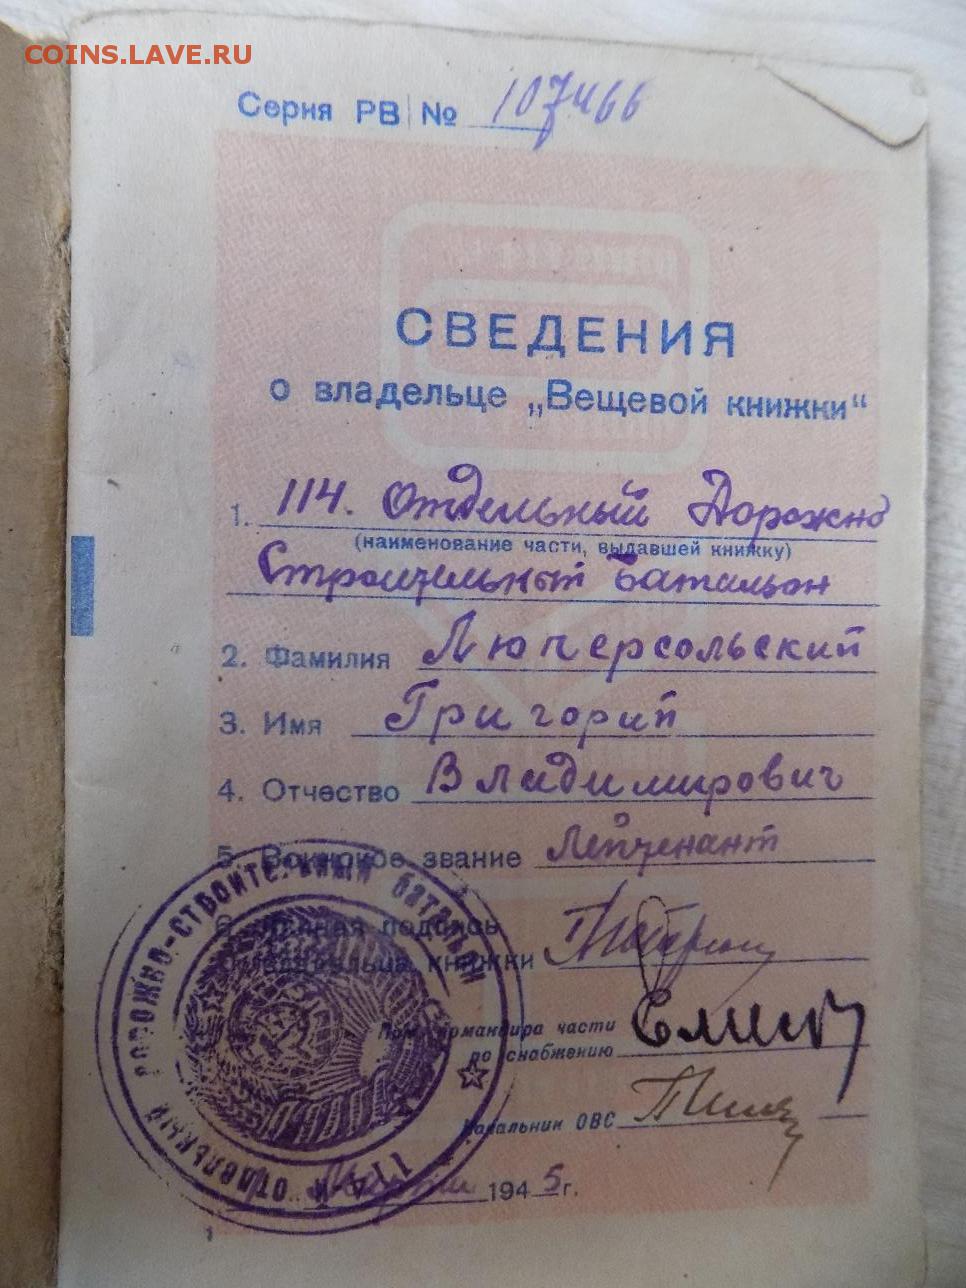 COINS.LAVE.RU
Серия РВ № 107466
СВЕДЕНИЯ
о владельце „Вещевой книжки“
1. 114. Отдельный Дорожно
(наименование части, выдавшей книжку)
Строительный Батальон
2. Фамилия Люперсольский
3. Имя Григорий
4. Отчество Владимирович
5. Воинское звание Лейтенант
6. Личная подпись
владельца книжки
Пом. командира части
по снабжению
Начальник ОВС
194 5 г.
114-й ОТДЕЛЬНЫЙ ДОРОЖНО-СТРОИТЕЛЬНЫЙ батальон
1